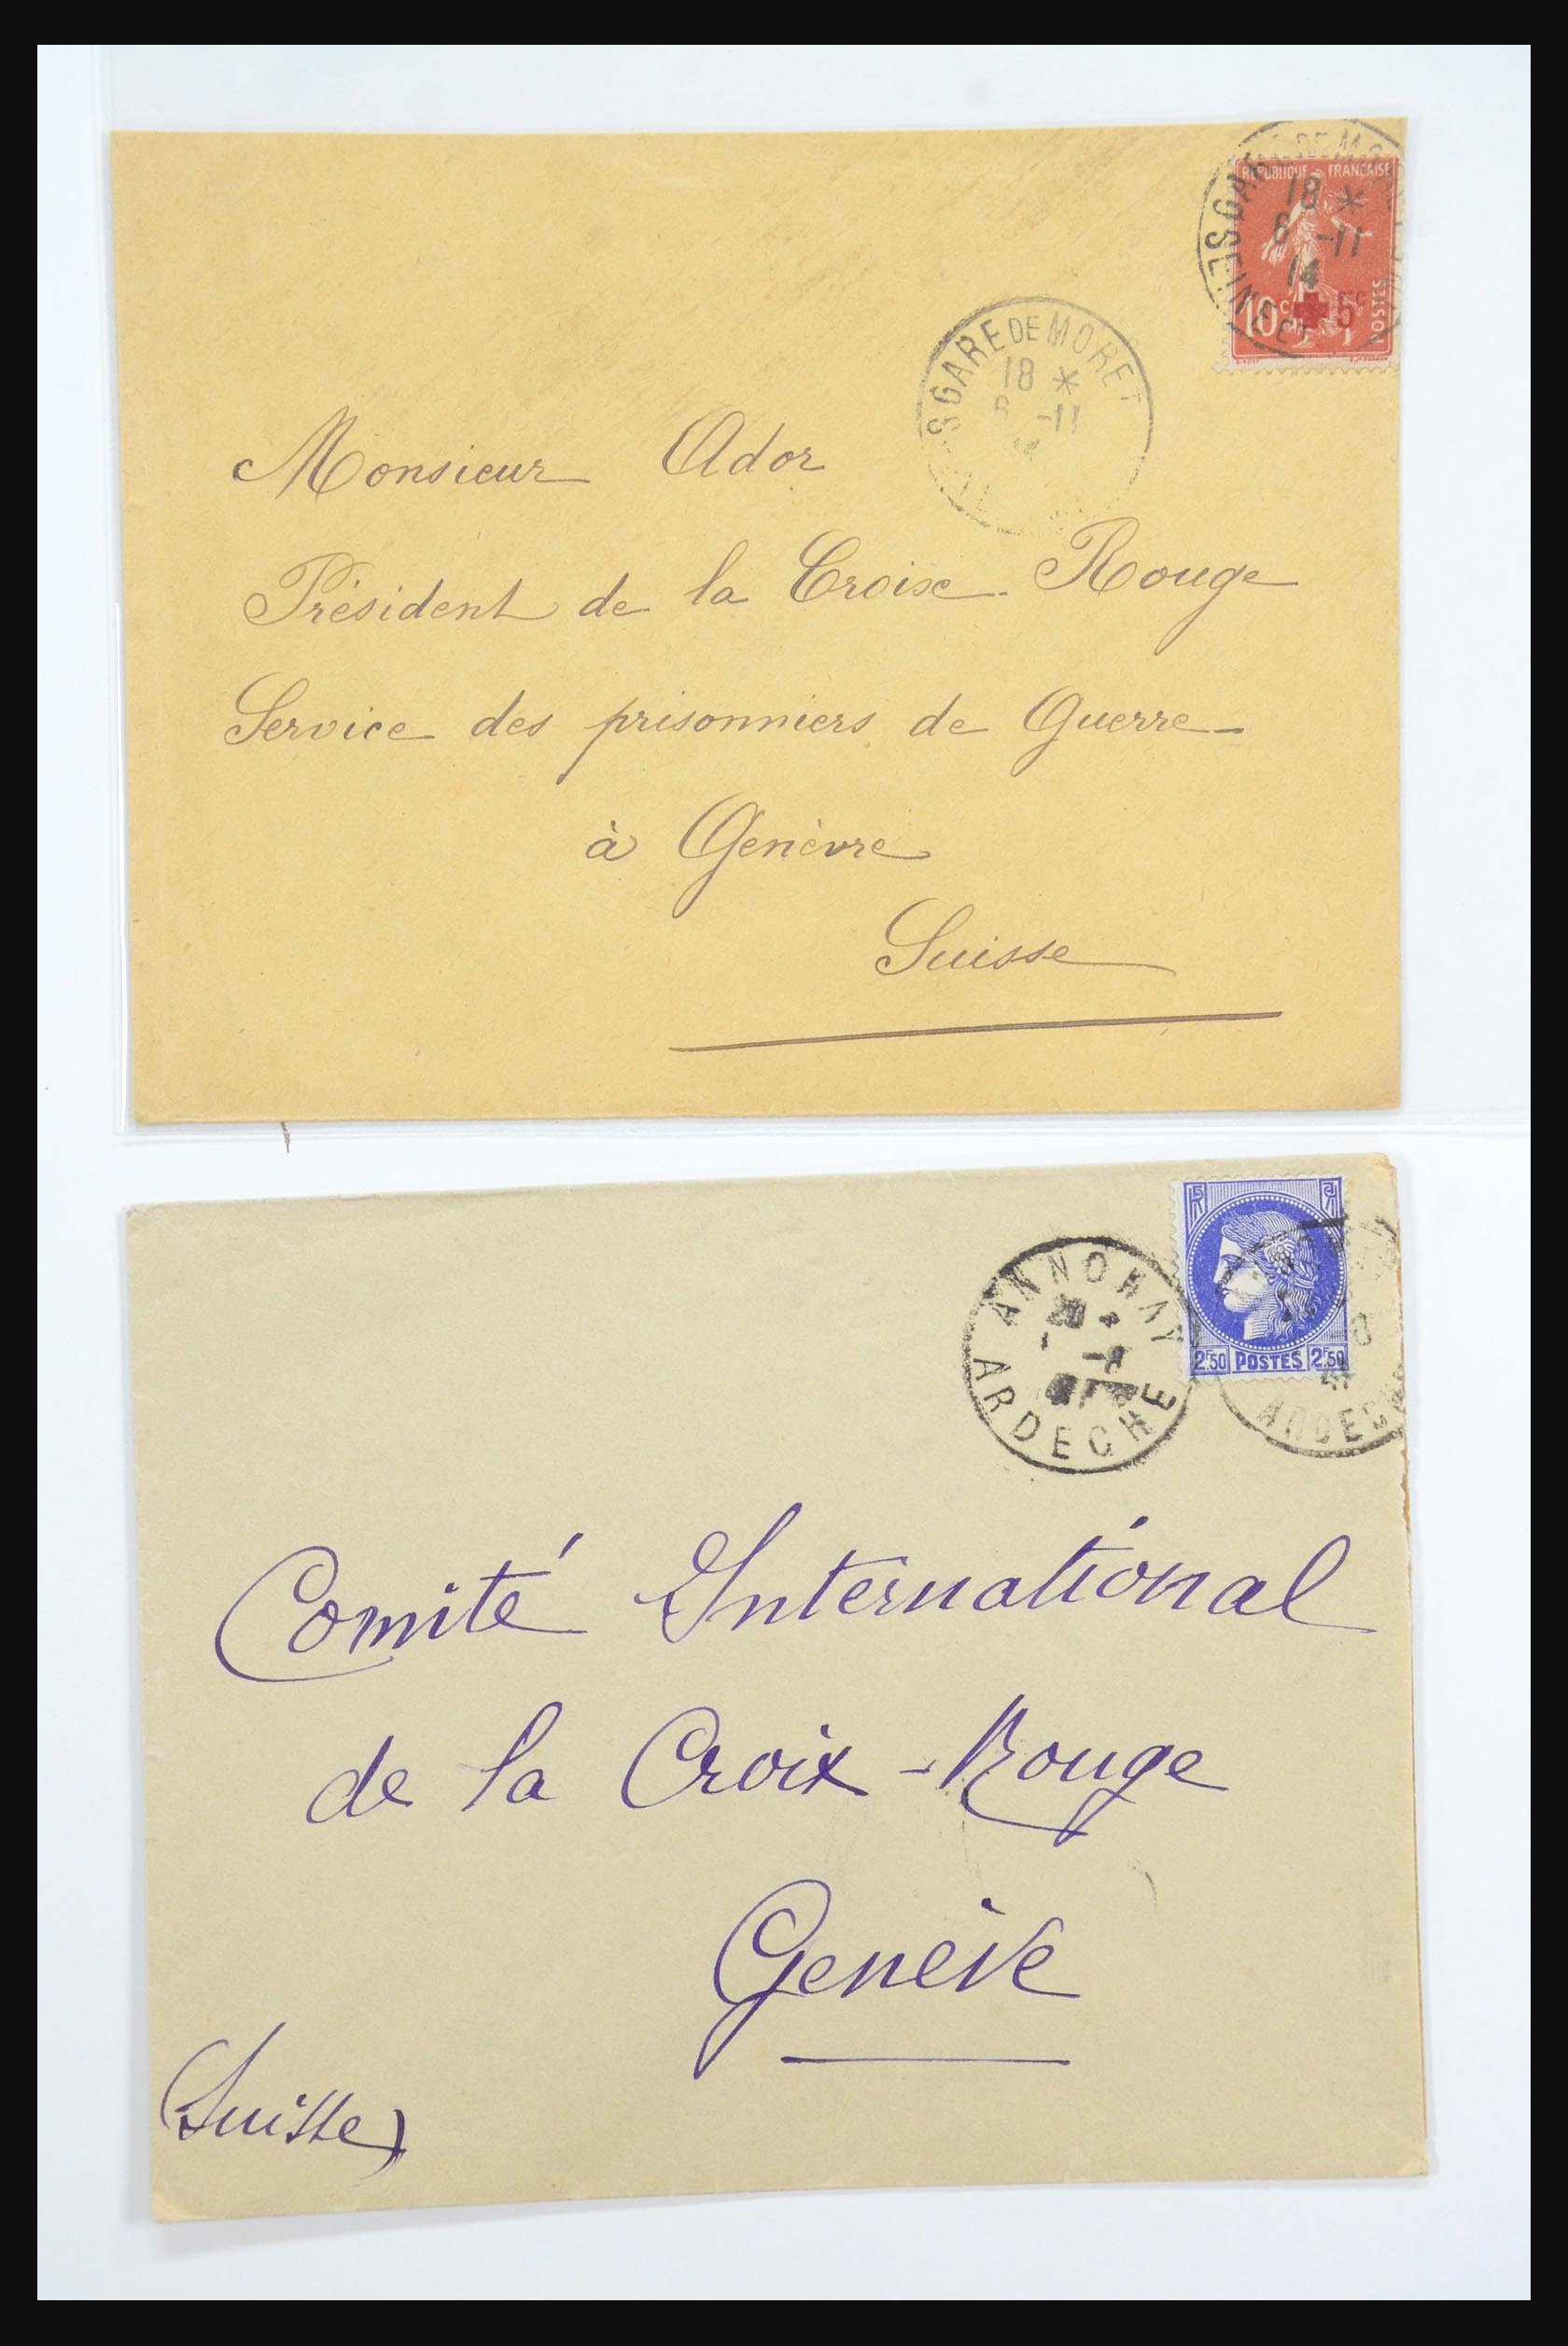 REPUBLIQUE FRANÇAISE
18 *
6 -11
14
10c + 5c
POSTES
S GARE DE MORET
18 *
6 -11
Monsieur Ador
Président de la Croise-Rouge
Service des prisonniers de Guerre
à Genèvre
Suisse
ANNONAY
ARDECHE
2F50 POSTES 2F50
ARDECHE
Comité International
de la Croix-Rouge
Genève
(Suisse)